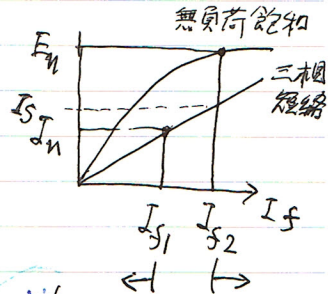 無負荷飽和
En
三相
短絡
Is
In
If
If1
If2